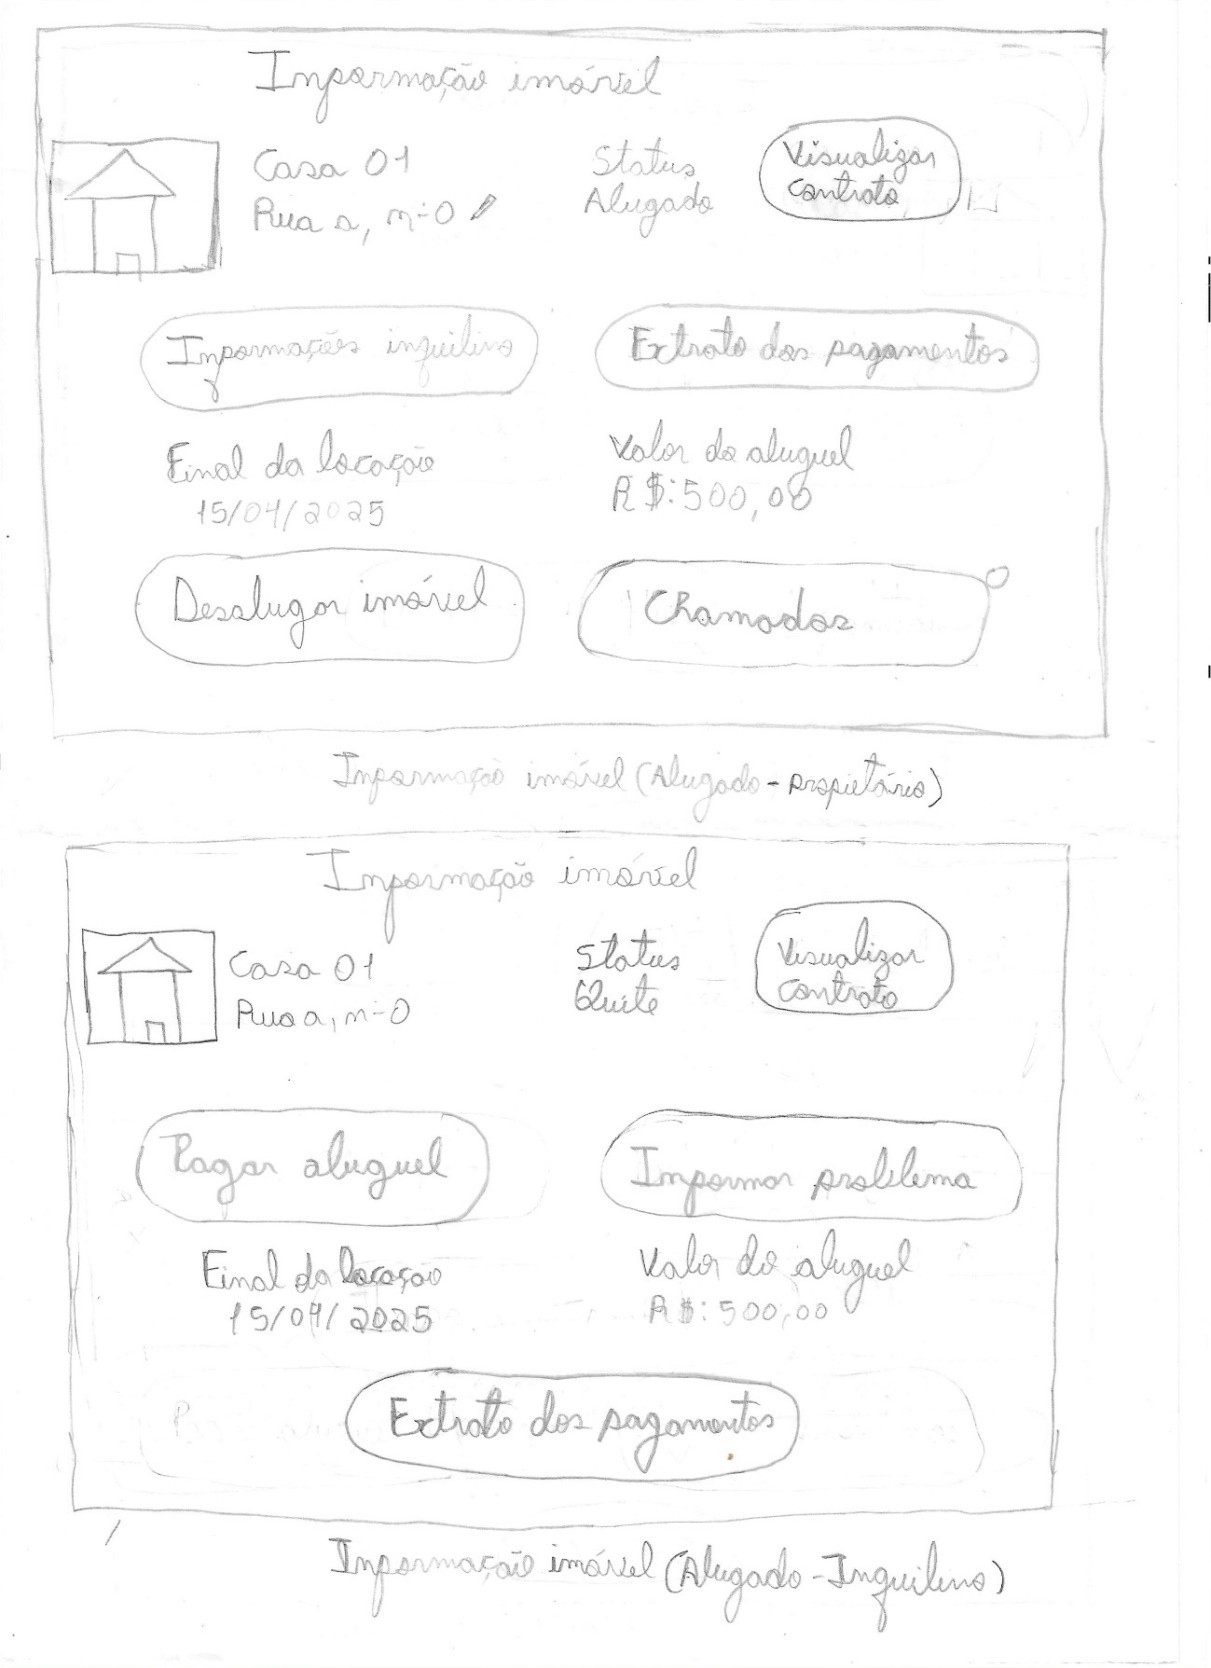 Informação imóvel
Casa 01
Rua a, n-0
Status
Alugado
Visualizar
contrato
Informações inquilino
Extrato dos pagamentos
Final da locação
15/04/2025
Valor do aluguel
R$:500,00
Desalugar imóvel
Chamados
Informação imóvel (Alugado-propietário)
Informação imóvel
Casa 01
Rua a, n-0
Status
Quite
Visualizar
contrato
Pagar aluguel
Informar problema
Final da locação
15/04/2025
Valor do aluguel
R$:500,00
Extrato dos pagamentos
Informação imóvel (Alugado-Inquilino)